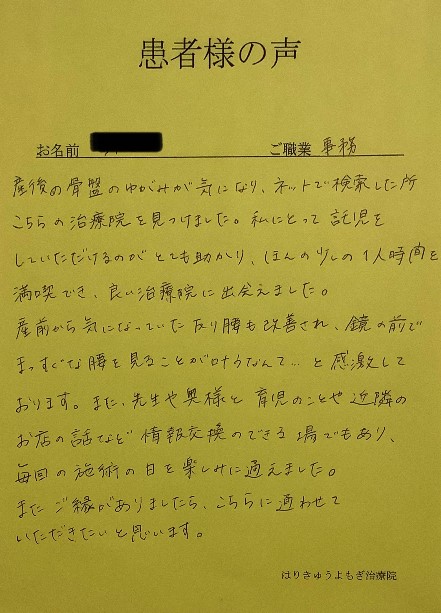 患者様の声
お名前 ご職業 事務
産後の骨盤のゆがみが気になり、ネットで検索した所
こちらの治療院を見つけました。私にとって託児を
していただけるのがとても助かり、ほんの少しの1人時間を
満喫でき、良い治療院に出会えました。
産前から気になっていた反り腰も改善され、鏡の前で
まっすぐな腰を見ることが叶うなんて…と感激して
おります。また、先生や奥様と育児のことや近隣の
お店の話など情報交換のできる場でもあり、
毎回の施術の日を楽しみに通えました。
またご縁がありましたら、こちらに通わせて
いただきたいと思います。
はりきゅうよもぎ治療院